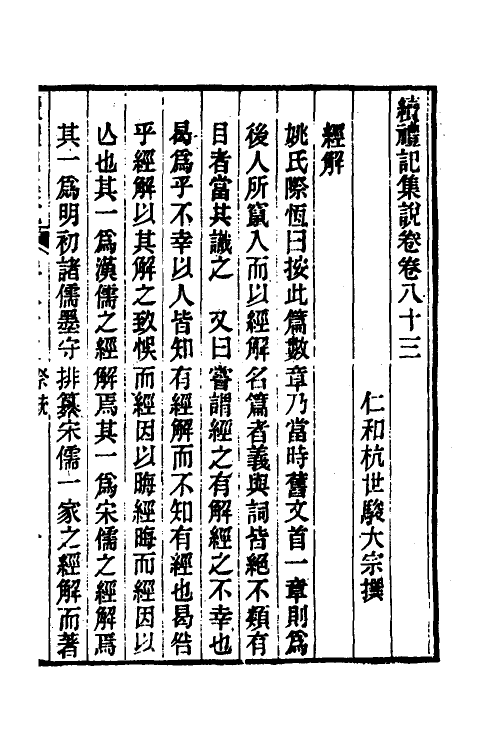 續禮記集說卷卷八十三
仁和杭世駿大宗撰
經解
姚氏際恆曰按此篇數章乃當時舊文首一章則爲
後人所竄入而以經解名篇者義與詞皆絕不類有
目者當其識之　又曰嘗謂經之有解經之不幸也
曷爲乎不幸以人皆知有經解而不知有經也曷咎
乎經解以其解之致悞而經因以晦經晦而經因以
亾也其一爲漢儒之經解焉其一爲宋儒之經解焉
其一爲明初諸儒墨守排纂宋儒一家之經解而著